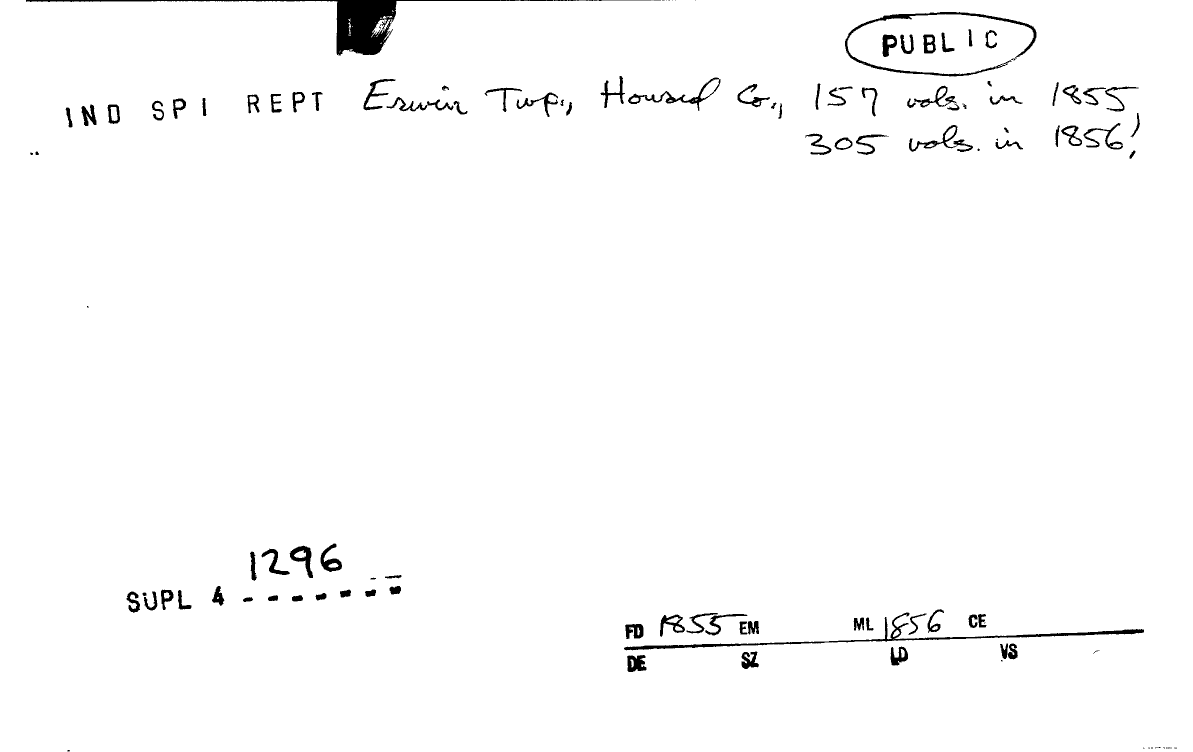 PUBLIC
IND SPI REPT Erwin Twp., Howard Co., 157 vols. in 1855
305 vols. in 1856!
1296
SUPL 4 - - - - - - -
FD 1855 EM ML 1856 CE
DE SZ LD VS